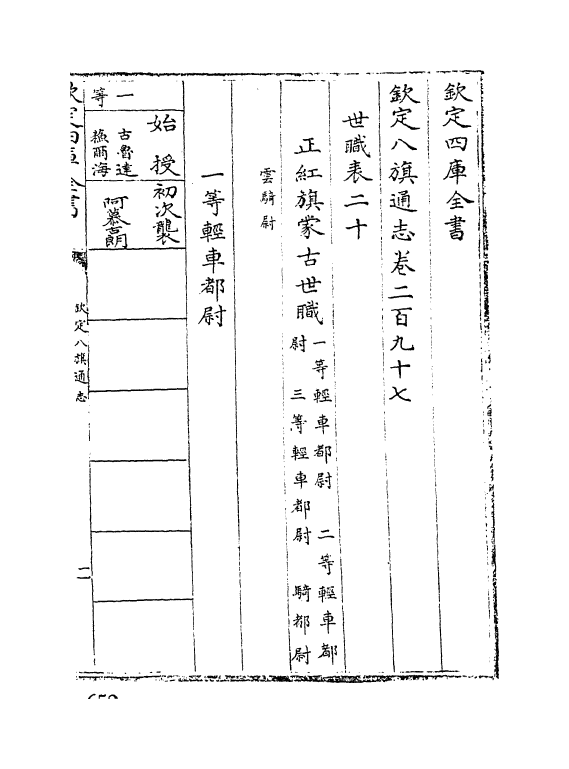 欽定四庫全書
欽定八旗通志卷二百九十七
世職表二十
正紅旗蒙古世職 一等輕車都尉 二等輕車都
尉 三等輕車都尉 騎都尉
雲騎尉
一等輕車都尉
始授 初次襲
古魯達 阿慕朗
爾海
一等
欽定四庫全書
欽定八旗通志